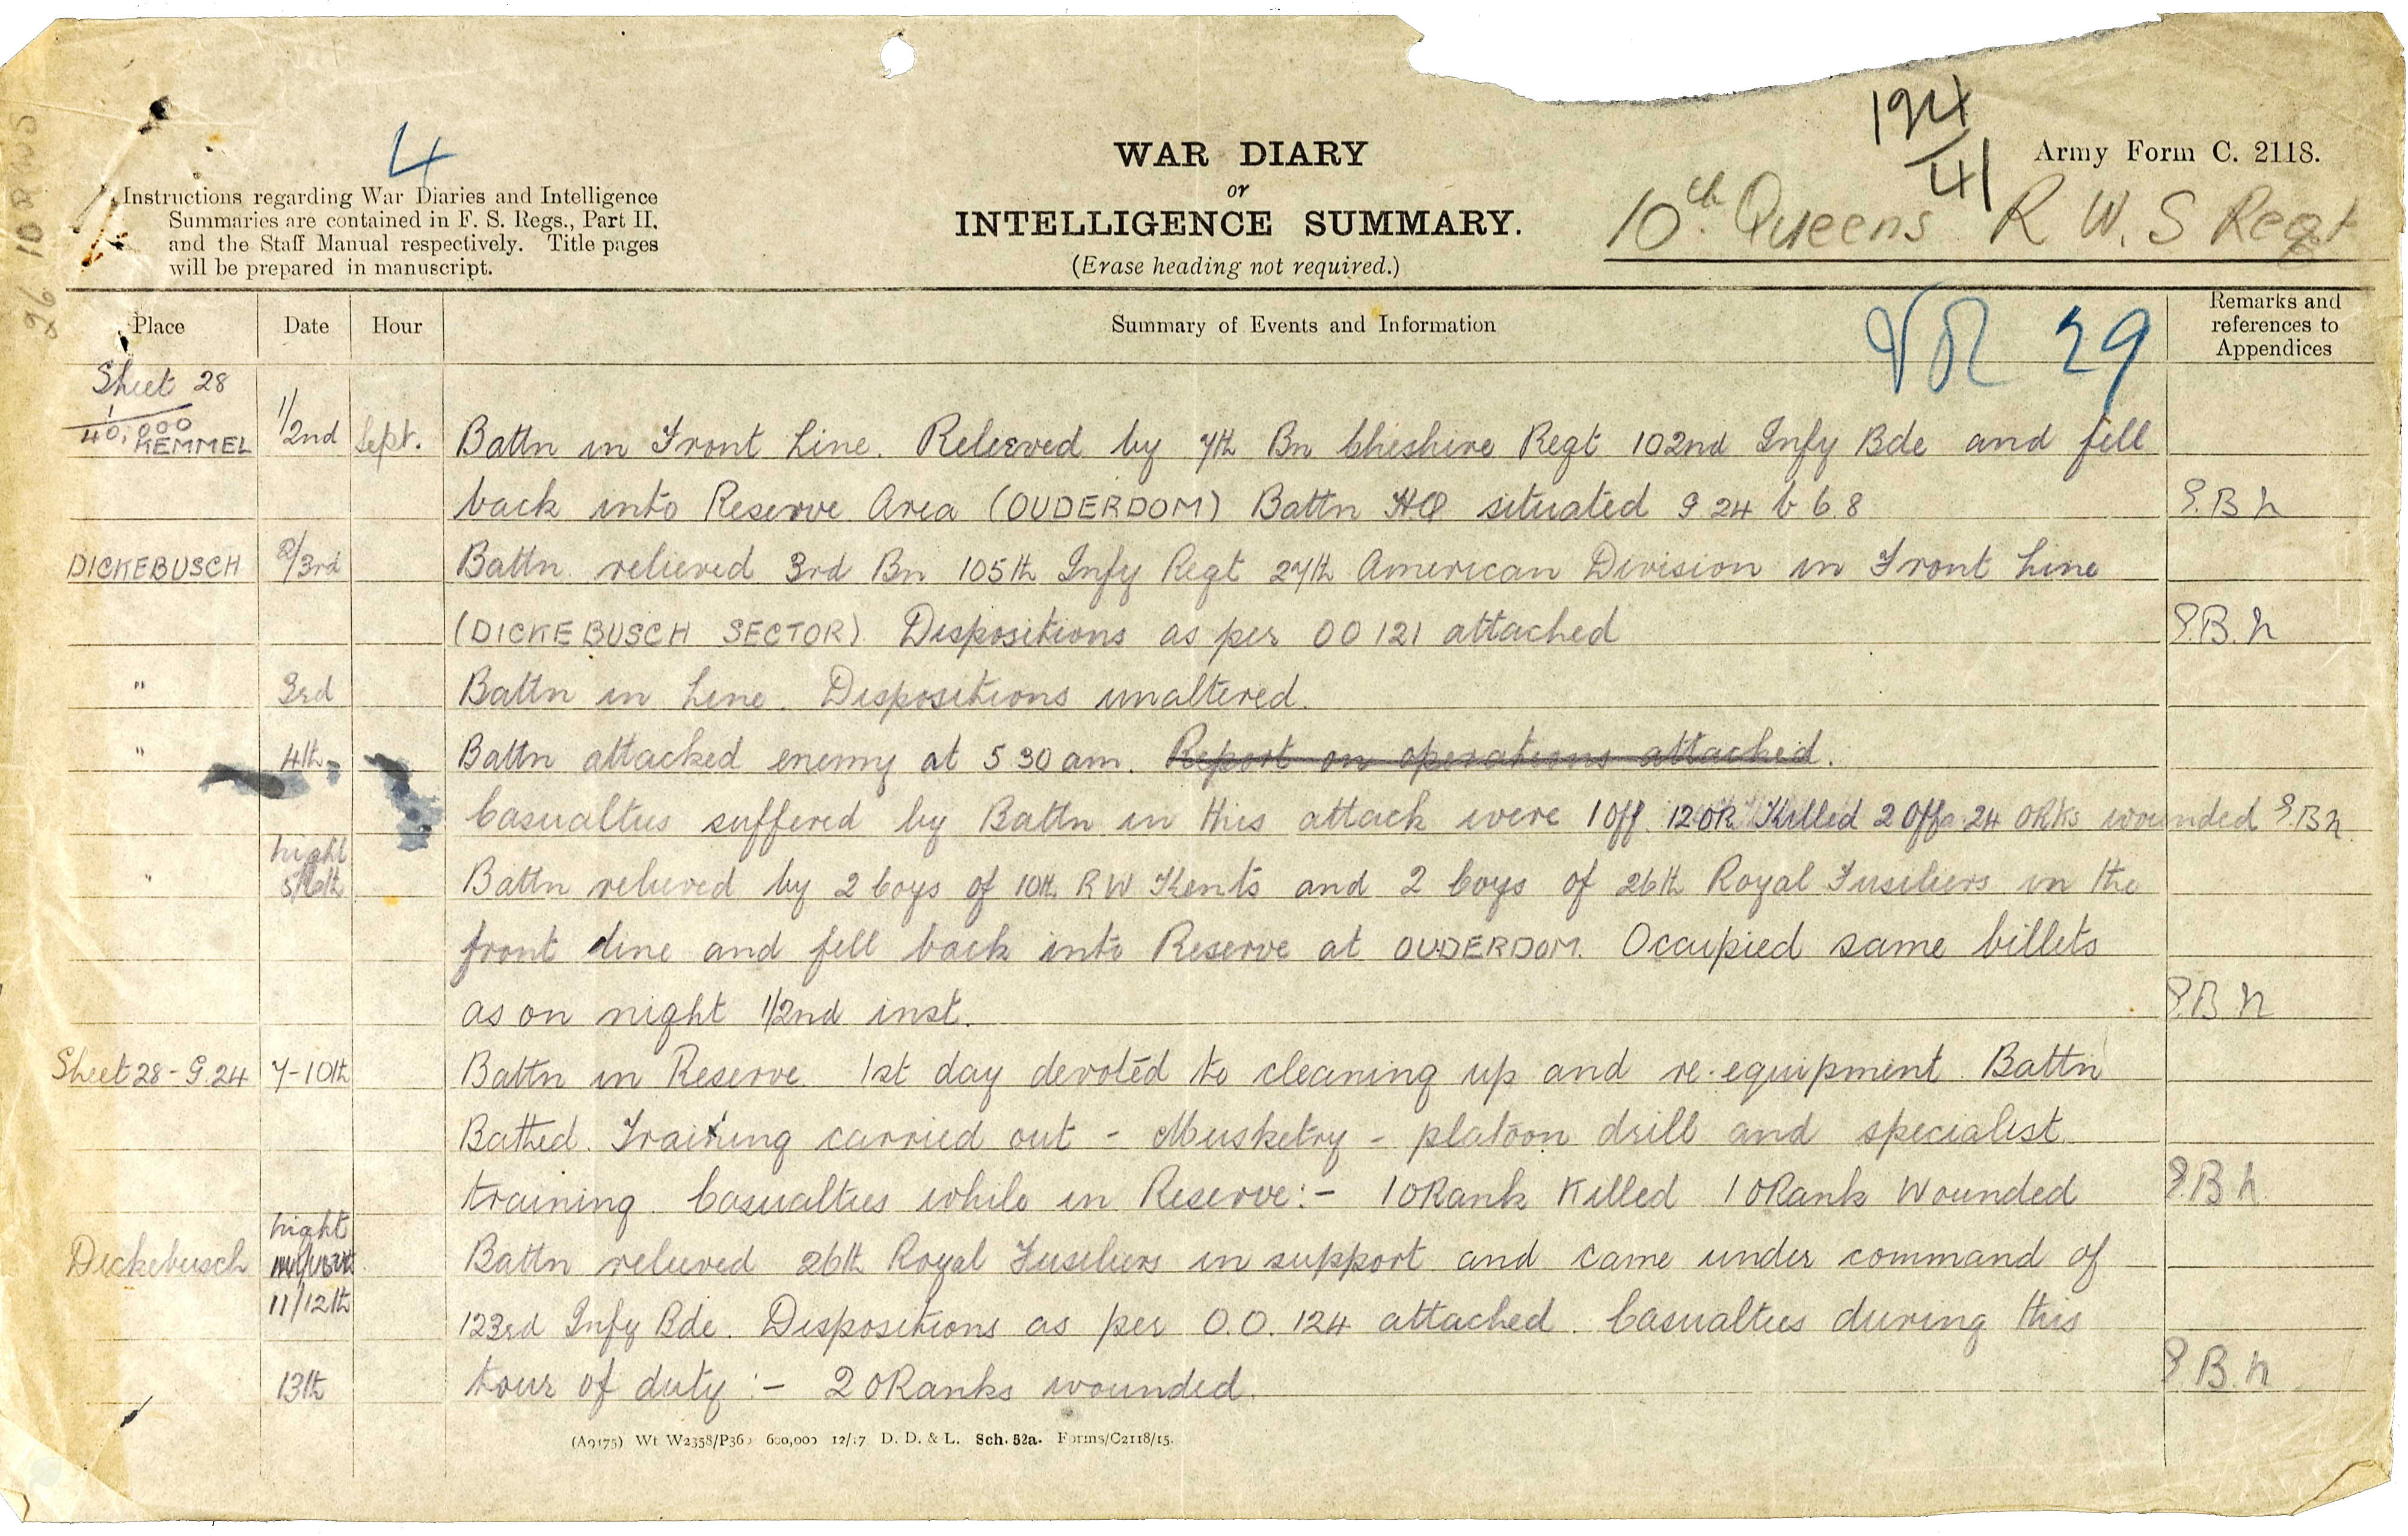 4
124
41
WAR DIARY
or
INTELLIGENCE SUMMARY.
(Erase heading not required.)
Army Form C. 2118.
10th Queens R W. S Regt
Instructions regarding War Diaries and Intelligence
Summaries are contained in F. S. Regs., Part II,
and the Staff Manual respectively. Title pages
will be prepared in manuscript.
Place Date Hour Summary of Events and Information Remarks and references to Appendices
29
Sheet 28
1/40,000
KEMMEL 1/2nd Sept. Battn in Front Line. Relieved by 7th Bn Cheshire Regt 102nd Infy Bde and fell
back into Reserve Area (OUDERDOM) Battn HQ situated G 24 b 6.8 E.B.N
DICKEBUSCH 2/3rd Battn relieved 3rd Bn 105th Infy Regt 27th American Division in Front Line
(DICKEBUSCH SECTOR). Dispositions as per OO 121 attached E.B.N
" 3rd Battn in Line. Dispositions unaltered.
" 4th Battn attacked enemy at 5 30 am. Report on operations attached.
Casualties suffered by Battn in this attack were 1 Off. 12 OR Killed 2 Offs 24 ORks wounded E.B.N
night
" 5/6th Battn relieved by 2 Coys of 10th R W Kents and 2 Coys of 26th Royal Fusiliers in the
front line and fell back into Reserve at OUDERDOM. Occupied same billets
as on night 1/2nd inst. E.B.N
Sheet 28 - G.24 7-10th Battn in Reserve 1st day devoted to cleaning up and re-equipment Battn
Bathed. Training carried out - Musketry - platoon drill and specialist
training. Casualties while in Reserve:- 1 ORank Killed 1 ORank Wounded E.B.N
night
Dickebusch Battn relieved 26th Royal Fusiliers in support and came under command of
11/12th
123rd Infy Bde. Dispositions as per O.O. 124 attached. Casualties during this
13th tour of duty :- 2 ORanks wounded. E.B.N
Wt W2358/P360 600,000 12/17 D. D. & L. Sch. 52a. Forms/C2118/15.